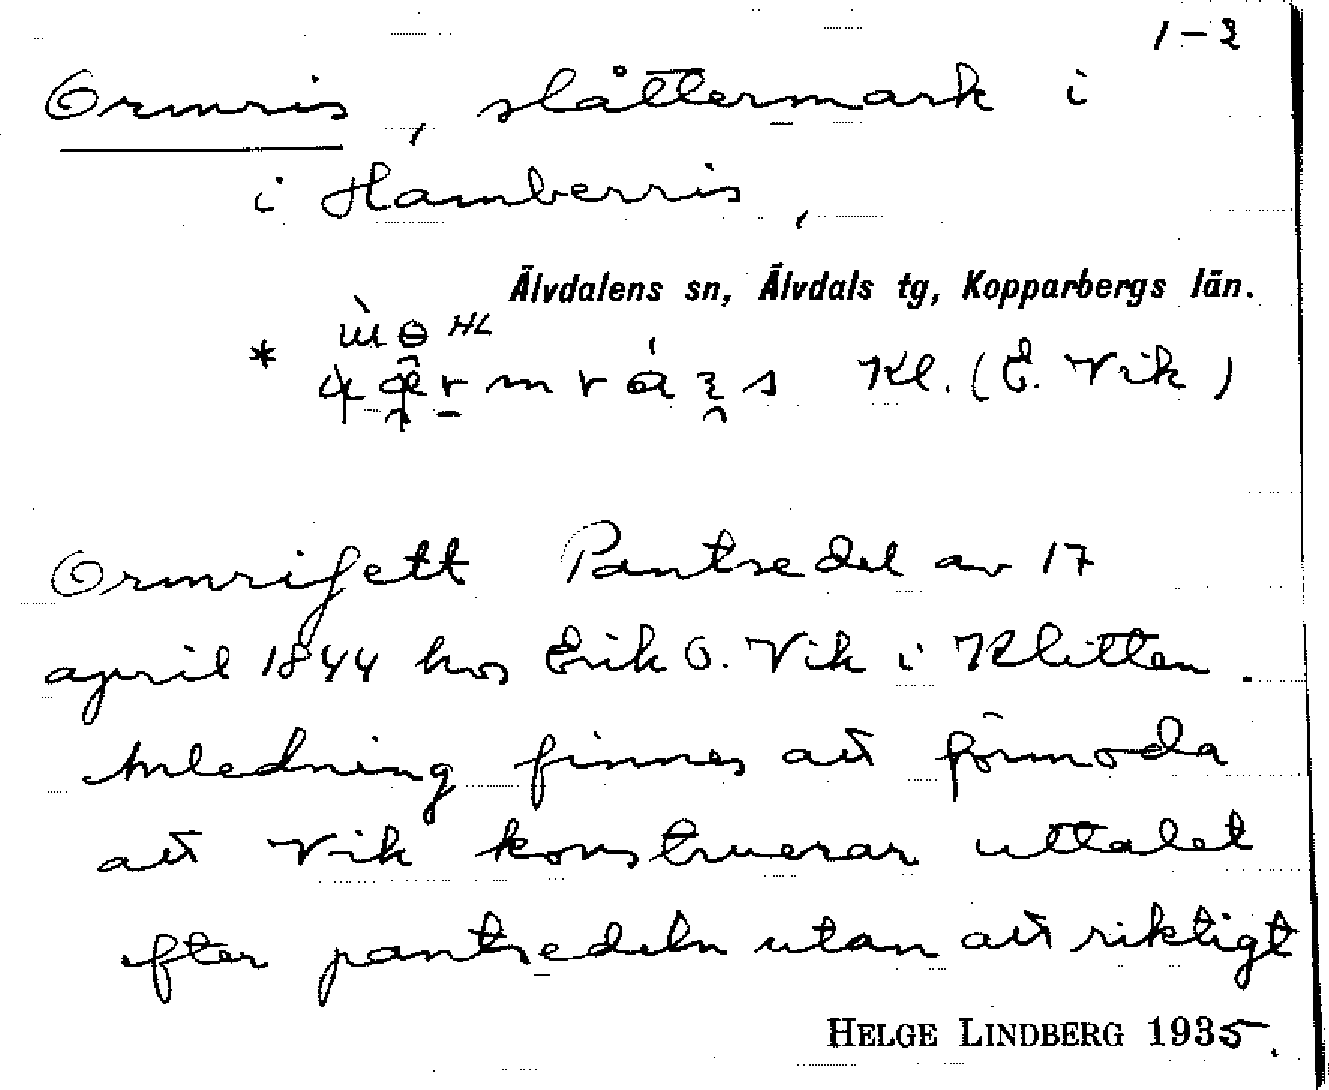 1-2
Ormris, slåttermark i
i Hamberris,
Älvdalens sn, Älvdals tg, Kopparbergs län.
HL
* Kl. (E. Vik)
Ormrisett Pantsedel av 17
april 1844 hos Erik O. Vik i Klitten.
Anledning finnes att förmoda
att Vik konstruerar uttalet
efter pantsedeln utan att riktigt
HELGE LINDBERG 1935.